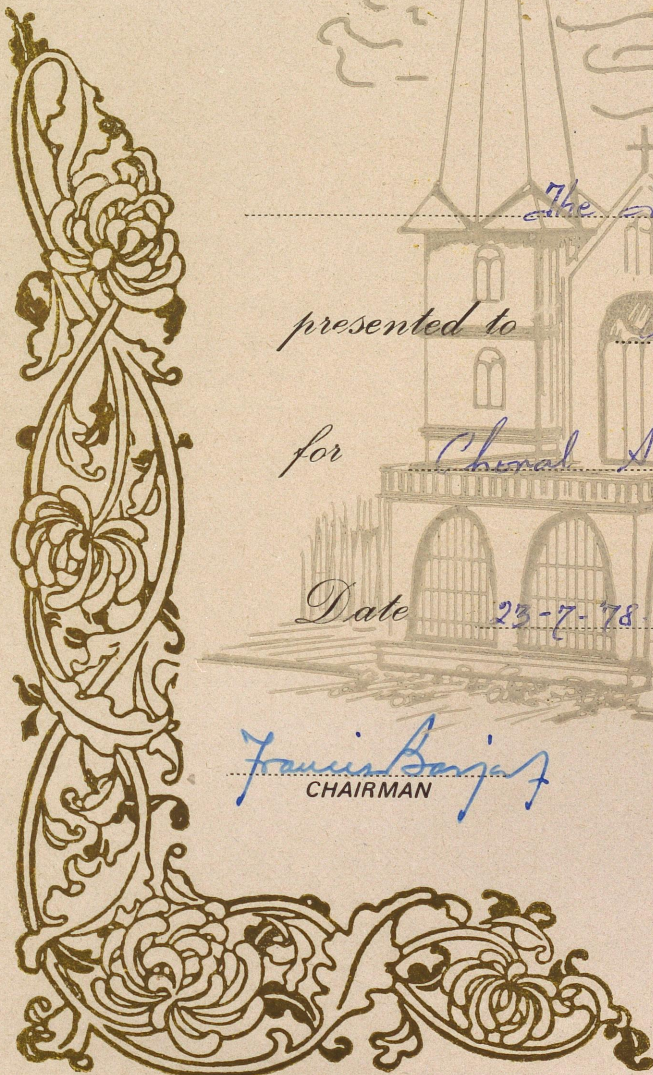 The
presented to
for Choral
Date 23-7-'78
Francis
CHAIRMAN